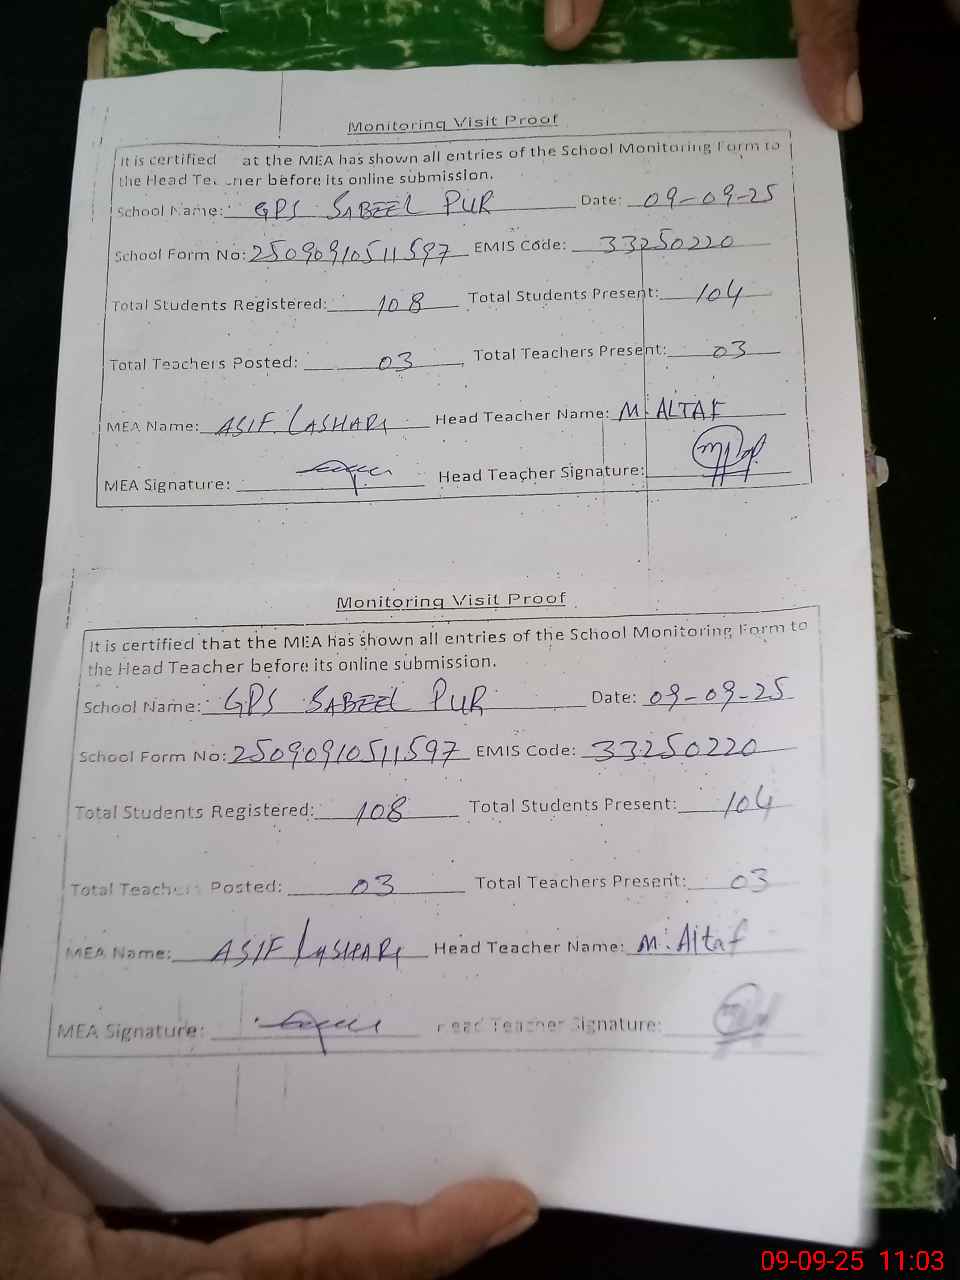 Monitoring Visit Proof
It is certified at the MEA has shown all entries of the School Monitoring Form to
the Head Teacher before its online submission.
School Name: GPS SABEEL PUR Date: 09-09-25
School Form No: 25090910511597 EMIS Code: 33250220
Total Students Registered: 108 Total Students Present: 104
Total Teachers Posted: 03 Total Teachers Present: 03
MEA Name: ASIF LASHARI Head Teacher Name: M. ALTAF
MEA Signature: Head Teacher Signature:
Monitoring Visit Proof
It is certified that the MEA has shown all entries of the School Monitoring Form to
the Head Teacher before its online submission.
School Name: GPS SABEEL PUR Date: 09-09-25
School Form No: 25090910511597 EMIS Code: 33250220
Total Students Registered: 108 Total Students Present: 104
Total Teachers Posted: 03 Total Teachers Present: 03
MEA Name: ASIF LASHARI Head Teacher Name: M. Altaf
MEA Signature: Head Teacher Signature:
09-09-25 11:03